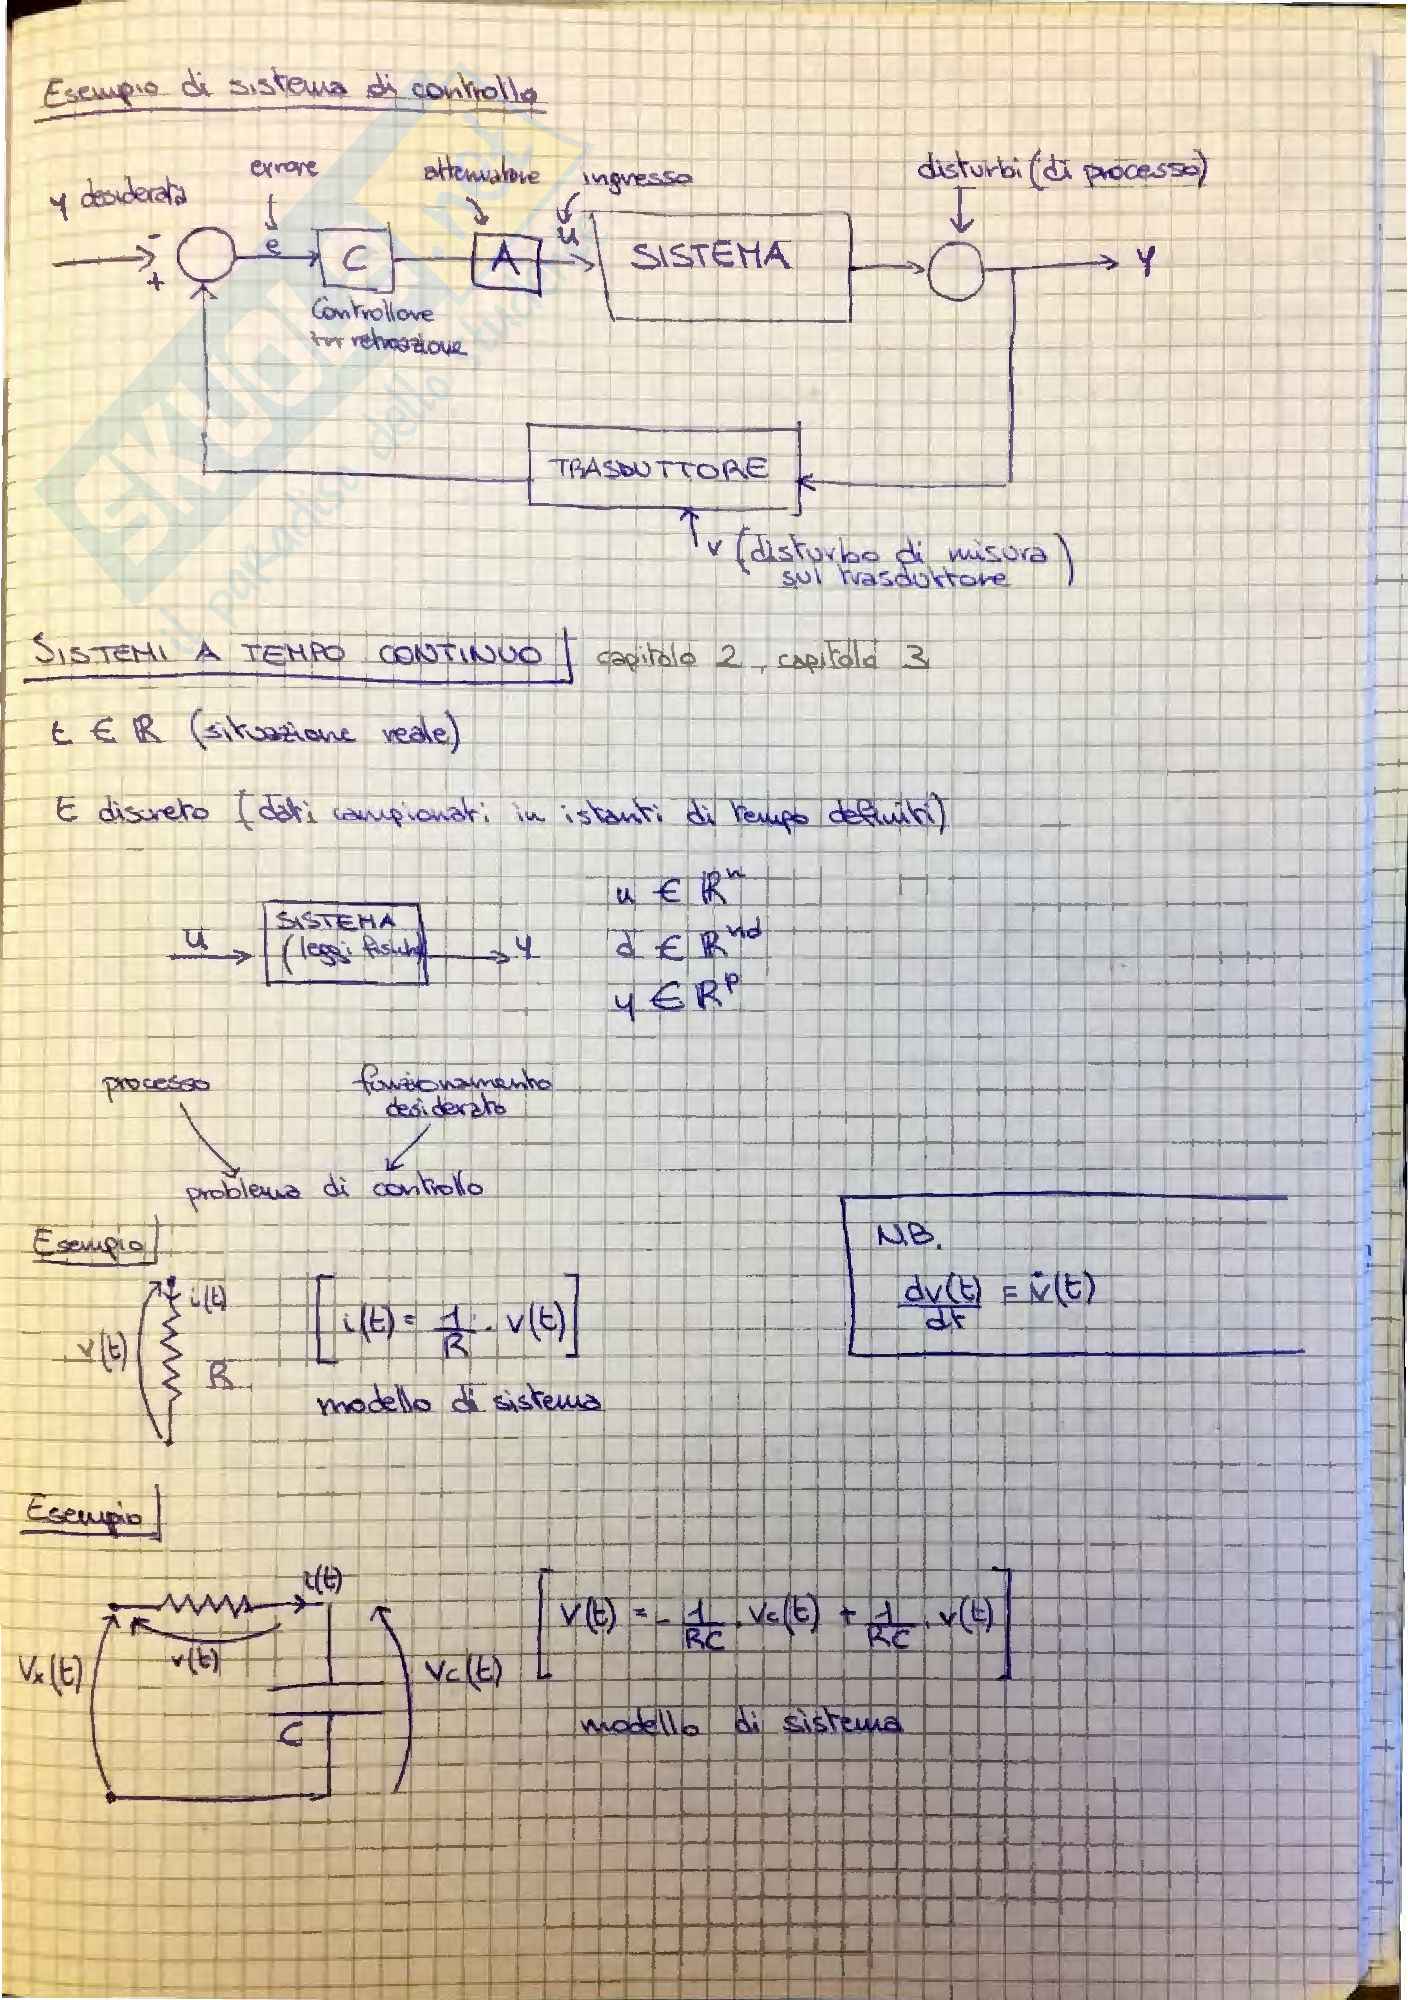 Esempio di sistema di controllo
y desiderata
errore
attenuatore
ingresso
disturbi (di processo)
-
+
e
C
A
u
SISTEMA
y
Controllore
in retroazione
TRASDUTTORE
v (disturbo di misura
sul trasduttore)
SISTEMI A TEMPO CONTINUO capitolo 2, capitolo 3
t ∈ ℝ (situazione reale)
t discreto (dati campionati in istanti di tempo definiti)
u
SISTEMA
(leggi fisiche)
y
u ∈ ℝⁿ
d ∈ ℝⁿᵈ
y ∈ ℝᵖ
processo
funzionamento
desiderato
problema di controllo
Esempio
N.B.
dv(t)/dt = v̇(t)
i(t)
v(t)
R
[i(t) = 1/R · v(t)]
modello di sistema
Esempio
i(t)
v(t)
Vx(t)
C
Vc(t)
[V(t) = - 1/RC · Vc(t) + 1/RC · v(t)]
modello di sistema
SKUOLA.net
il paradiso dello studente